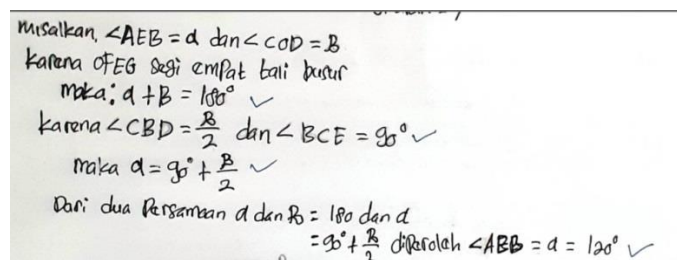 misalkan, ∠AEB = α dan ∠COD = B
karena OFEG segi empat tali busur
maka: α + B = 180° ✓
karena ∠CBD = B/2 dan ∠BCE = 90° ✓
maka α = 90° + B/2 ✓
Dari dua Persamaan α dan B = 180 dan α
= 90° + B/2 diperoleh ∠AEB = α = 120° ✓